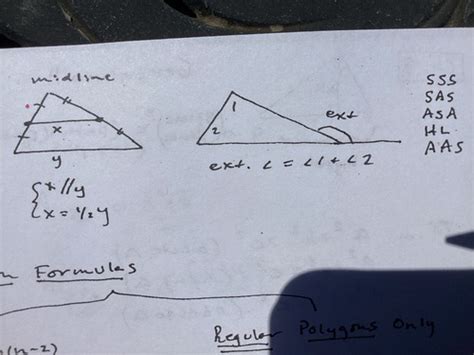 midline
x
y
{ x // y
x = 1/2 y
1
2
ext
ext. ∠ = ∠1 + ∠2
SSS
SAS
ASA
HL
AAS
Formulas
Regular Polygons Only
(n-2)